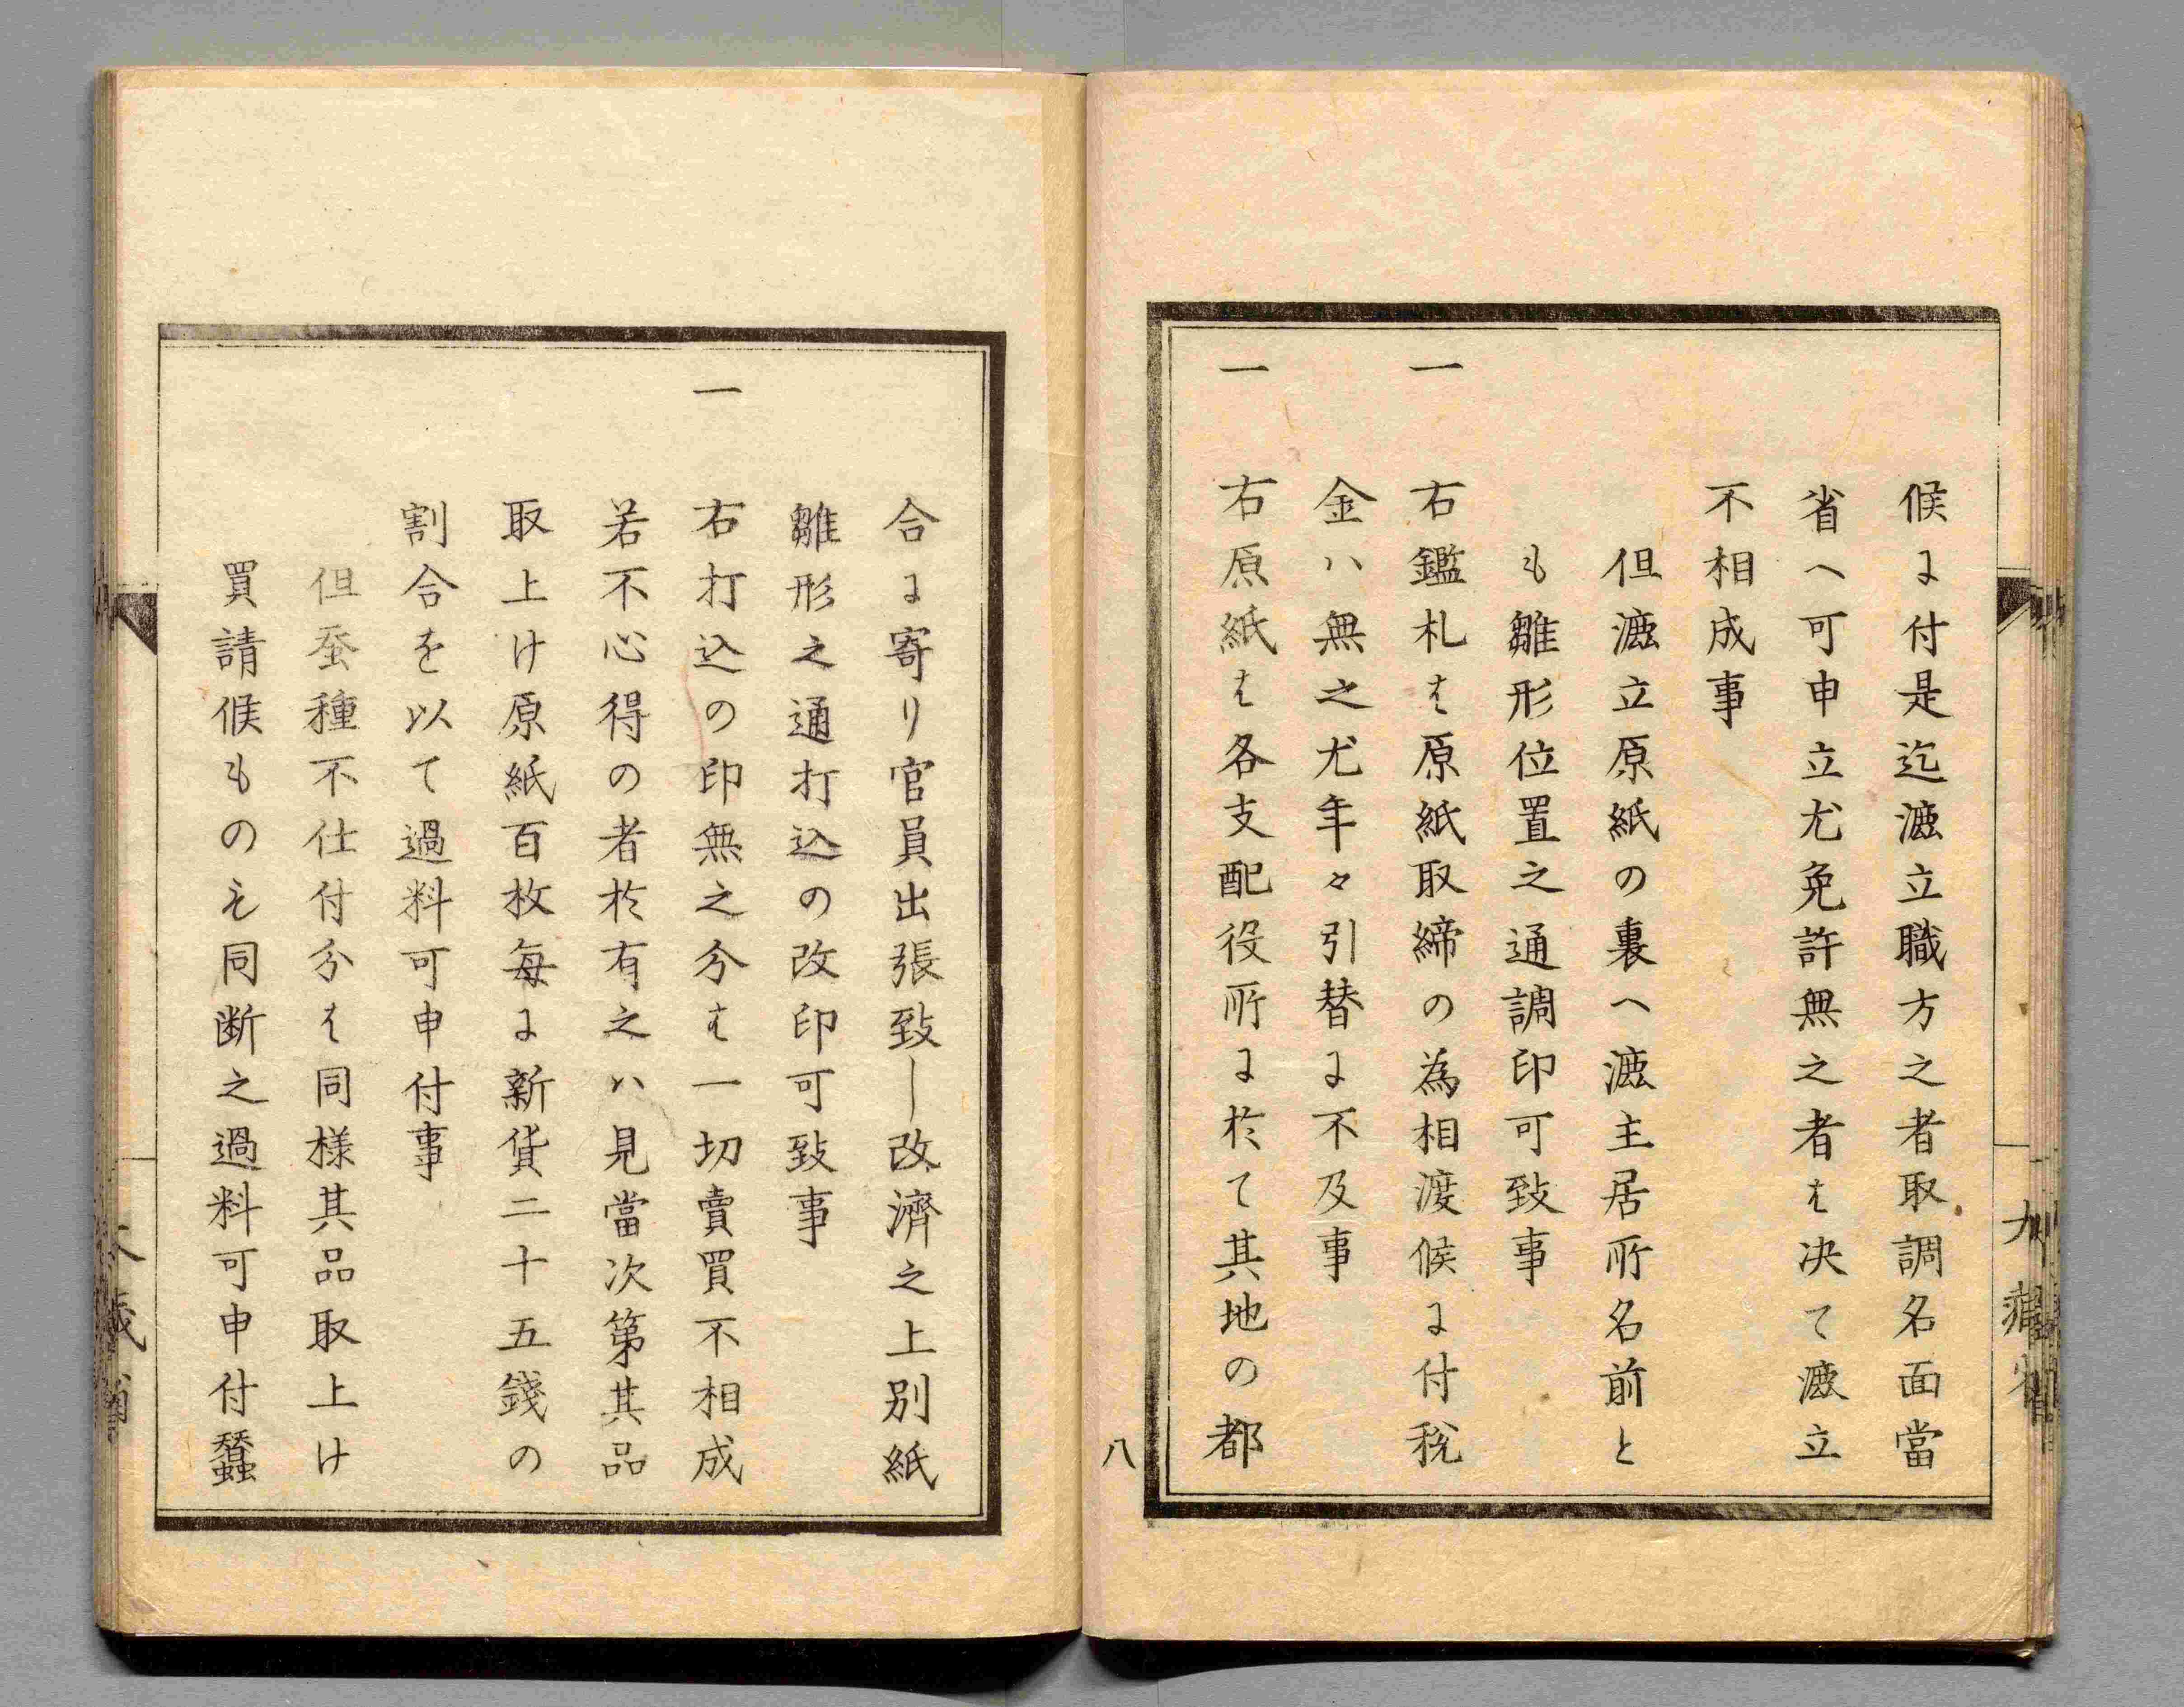 候に付是迄漉立職方之者取調名面當
省へ可申立尤免許無之者は决て漉立
不相成事
但漉立原紙の裏へ漉主居所名前と
も雛形位置之通調印可致事
一 右鑑札は原紙取締の為相渡候に付税
金ハ無之尤年々引替に不及事
一 右原紙は各支配役所に於て其地の都
八
合に寄り官員出張致し改濟之上別紙
雛形之通打込の改印可致事
一 右打込の印無之分は一切賣買不相成
若不心得の者於有之ハ見當次第其品
取上け原紙百枚毎に新貨二十五錢の
割合を以て過料可申付事
但蚕種不仕付分は同様其品取上け
買請候ものも同断之過料可申付蠶